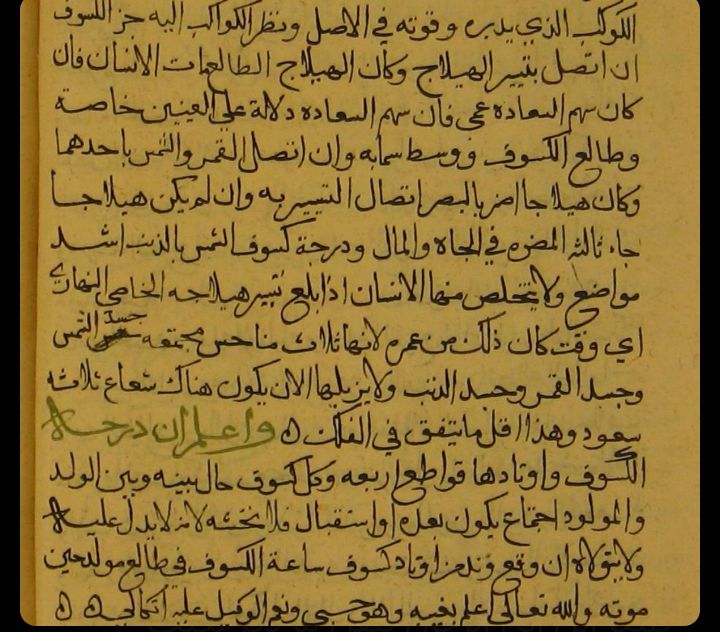 الكوكب الذي يدبره وقوته في الاصل ونظر الكواكب اليه جز الكسوف
ان اتصل بتيير الهيلاج وكان الهيلاج الطالع مات الانسان فان
كان سهم السعاده عمي فان سهم السعاده دلالة علي العينين خاصة
وطالع الكسوف ووسط سمايه وان اتصل القمر والشمس باحدهما
وكان هيلاجا اضر بالبصر اتصال التسيير به وان لم يكن هيلاجا
جاء ثالثه المضره في الجاه والمال ودرجة كسوف الشمس بالذنب اشد
مواضع ولا يتخلص منها الانسان اذا بلغ تسيير هيلاجه الخاصي النهاري
اي وقت كان ذلك من عمره لانها ثلاث مناحس مجتمعه جسد الشمس
وجسد القمر وجسد الذنب ولا يزيلها الا ان يكون هناك شعاع ثلاثه
سعود وهذا اقل ما يتفق في الفلك ۵ واعلم ان درجة
الكسوف واوتادها قواطع اربعه وكل كسوف حال بينه وبين الولد
والمولود اجتماع يكون بعده او استقبال فلا تخشه لانه لا يدل عليه
ولا يتولاه ان وقع وتد من اوتاد كسوف ساعة الكسوف في طالع مولد حين
موته والله تعالى اعلم بغيبه وهو حسبي ونعم الوكيل عليه اتكالي ۵ ۵